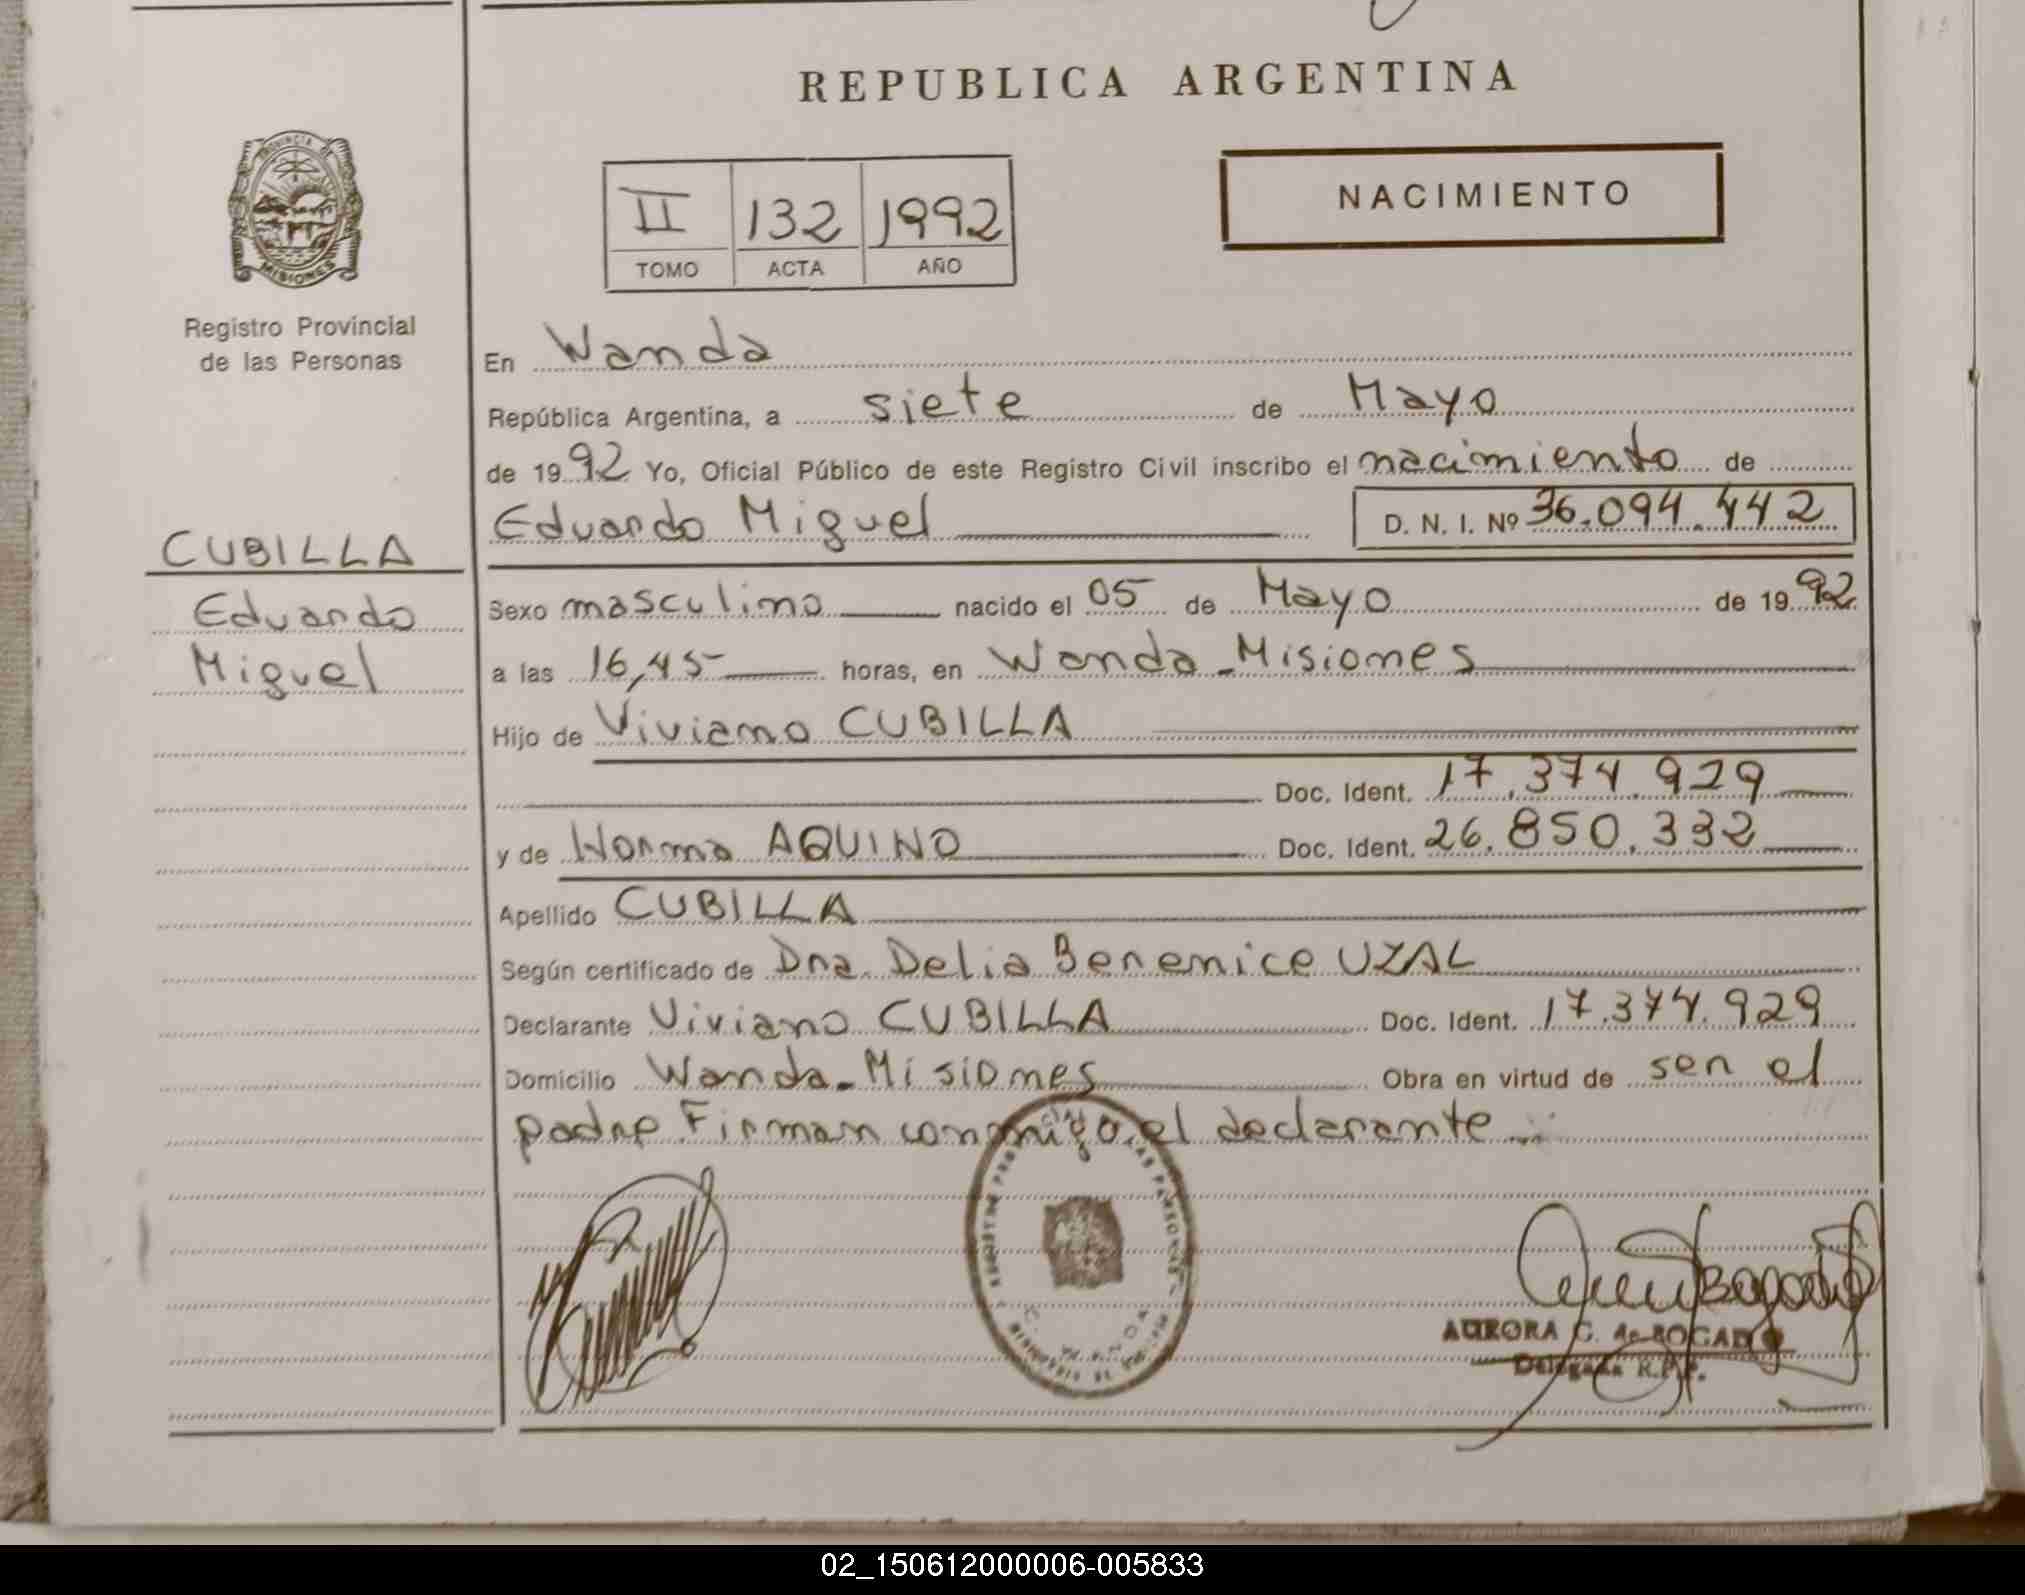 REPUBLICA ARGENTINA
PROVINCIA DE
MISIONES
Registro Provincial
de las Personas
II 132 1992
TOMO ACTA AÑO
NACIMIENTO
En Wanda
República Argentina, a siete de Mayo
de 1992 Yo, Oficial Público de este Registro Civil inscribo el nacimiento de
Eduardo Miguel D. N. I. Nº 36.094.442
CUBILLA
Eduardo
Miguel
Sexo masculino nacido el 05 de Mayo de 1992
a las 16,45 horas, en Wanda - Misiones
Hijo de Viviano CUBILLA
Doc. Ident. 17.374.929
y de Norma AQUINO Doc. Ident. 26.850.332
Apellido CUBILLA
Según certificado de Dra. Delia Berenice UZAL
Declarante Viviano CUBILLA Doc. Ident. 17.374.929
Domicilio Wanda - Misiones Obra en virtud de ser el
padre Firman conmigo el declarante
AURORA C. de BOGADO
Delegada R.P.P.
02_150612000006-005833